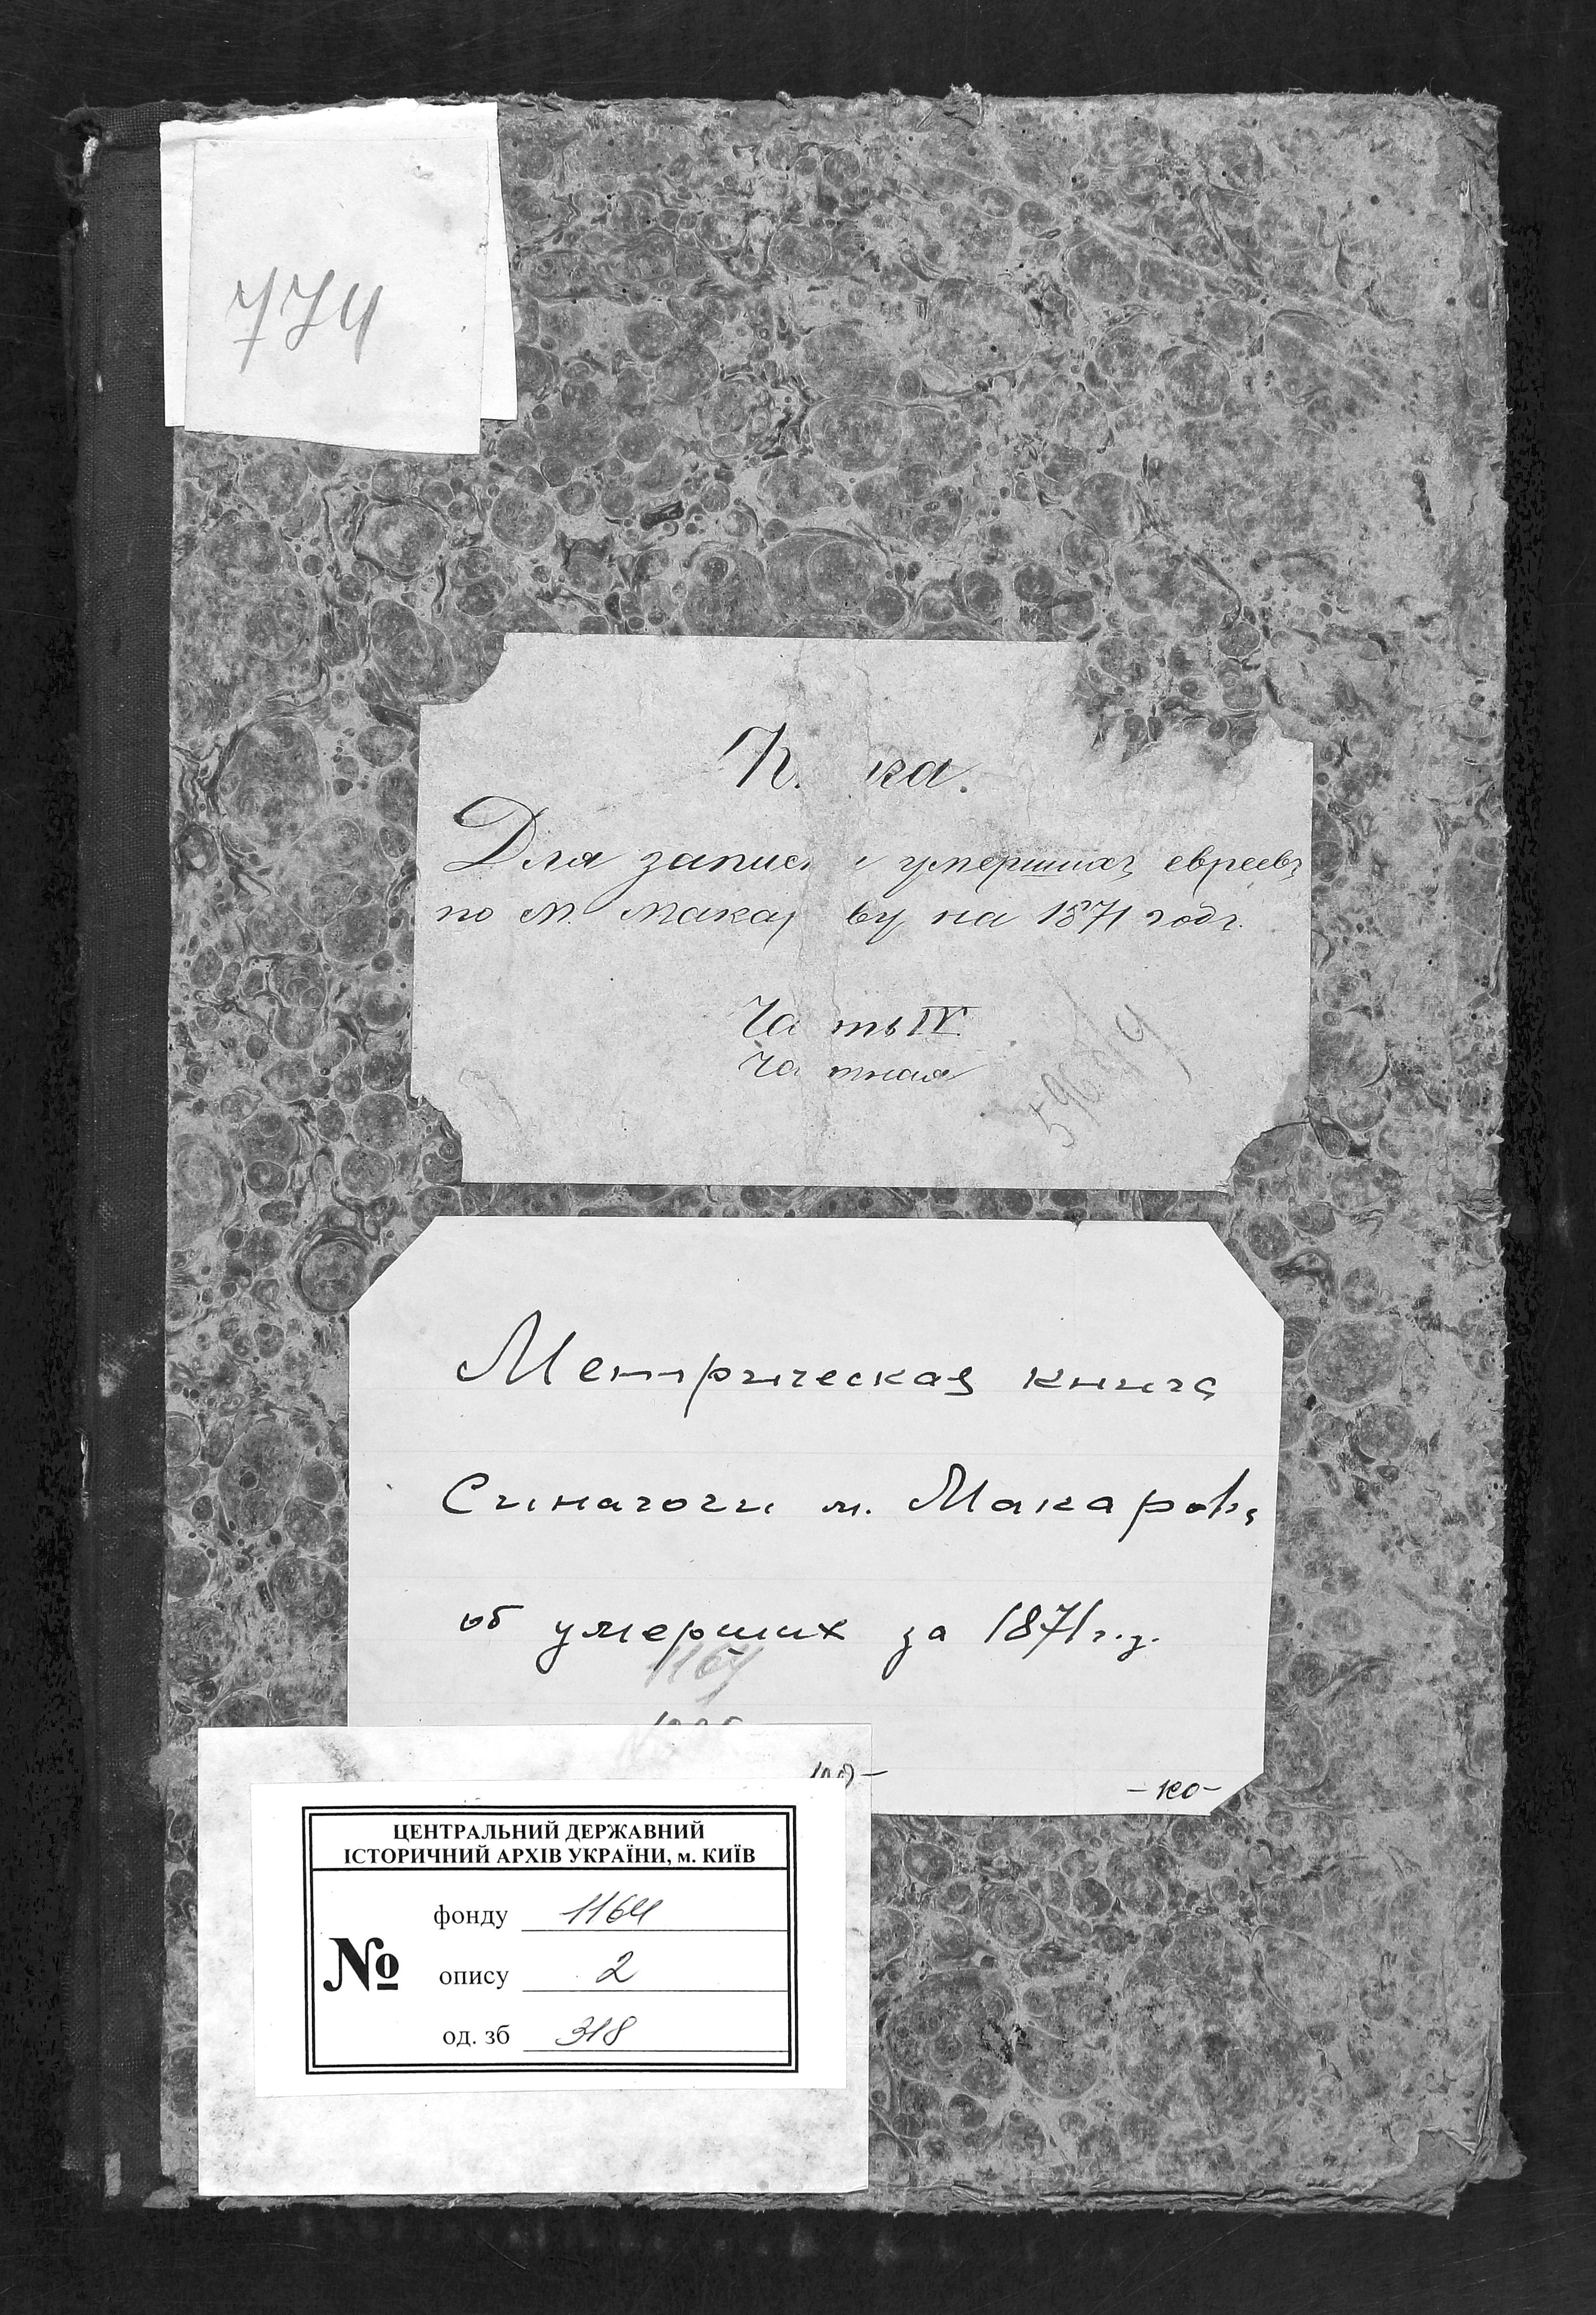 774
К. ка.
Для записи умершихъ евреевъ
по м. Макарову на 1871 годъ.
Часть IV
Частная
Метрическая книга
Синагоги м. Макарова
об умерших за 1871 г.
1164
-100-
ЦЕНТРАЛЬНИЙ ДЕРЖАВНИЙ
ІСТОРИЧНИЙ АРХІВ УКРАЇНИ, м. КИЇВ
№
фонду 1164
опису 2
од. зб 318